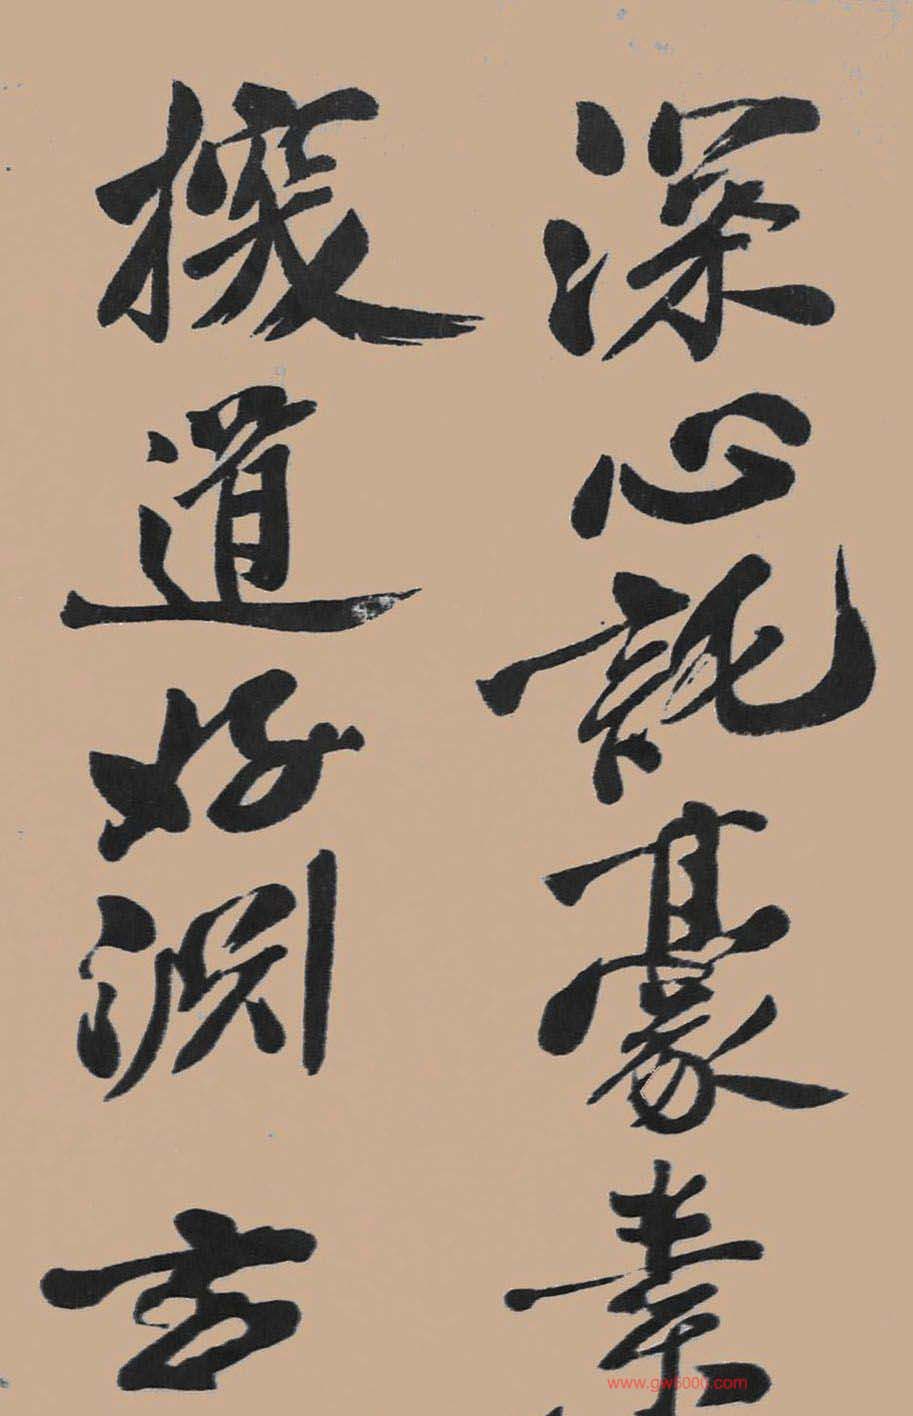 深心託豪素
探道好淵玄
www.gw5000.com